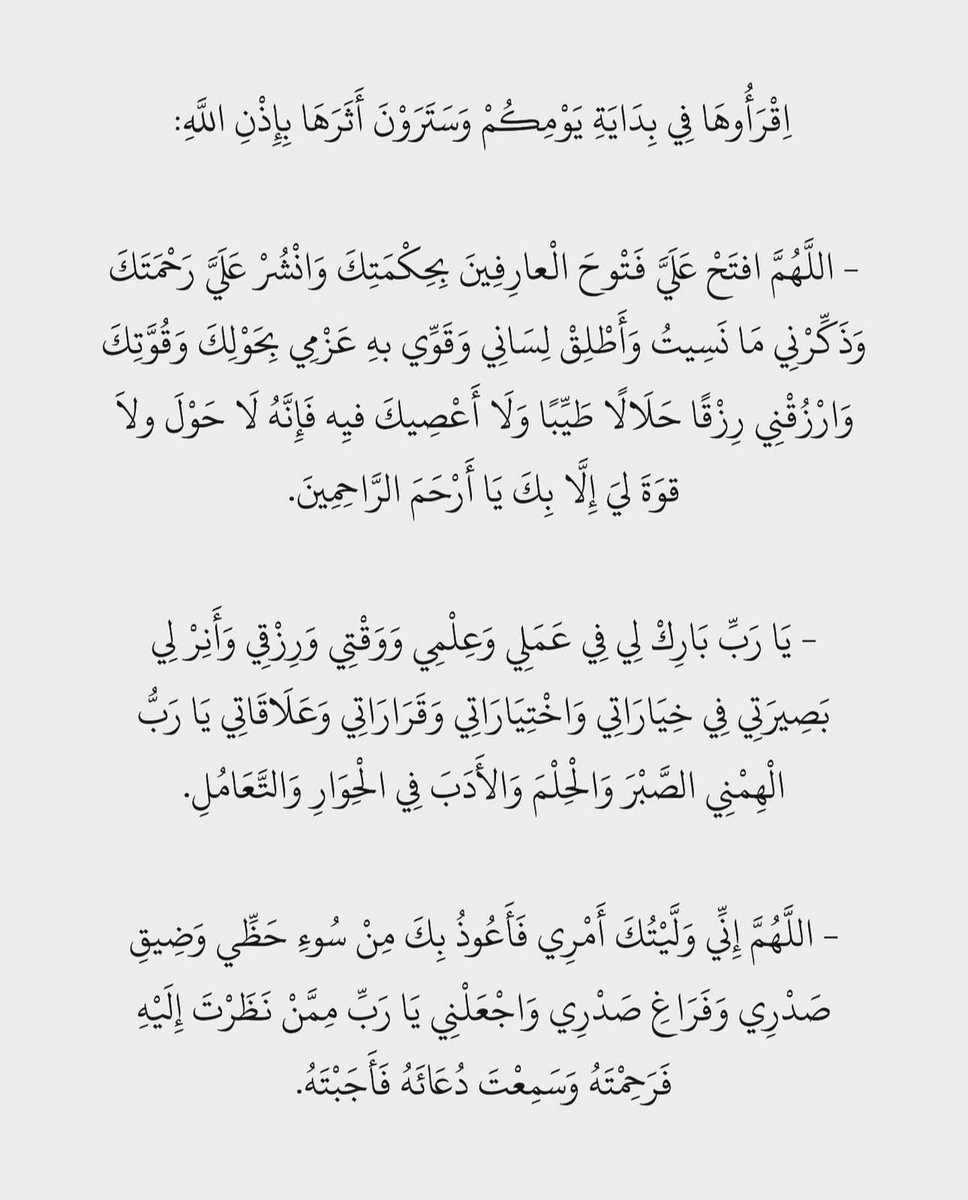 اِقْرَأُوهَا فِي بِدَايَةِ يَوْمِكُمْ وَسَتَرَوْنَ أَثَرَهَا بِإِذْنِ اللَّهِ:
- اللَّهُمَّ افتَحْ عَلَيَّ فَتْوحَ الْعارِفِينَ بِحِكْمَتِكَ وَانْشُرْ عَلَيَّ رَحْمَتَكَ
وَذَكِّرْنِي مَا نَسِيتُ وَأَطْلِقْ لِسَانِي وَقَوِّي بهِ عَزْمِي بِحَوْلِكَ وَقُوَّتِكَ
وَارْزُقْنِي رِزْقًا حَلَالًا طَيِّبًا وَلَا أَعْصِيكَ فيِه فَإِنَّهُ لَا حَوْلَ ولاَ
قوَةَ ليَ إِلَّا بِكَ يَا أَرْحَمَ الرَّاحِمِينَ.
- يَا رَبِّ بَارِكْ لِي فِي عَمَلِي وَعِلْمِي وَوَقْتِي وَرِزْقِي وَأَنِرْ لِي
بَصِيرَتِي فِي خِيَارَاتِي وَاخْتِيَارَاتِي وَقَرَارَاتِي وَعَلَاقَاتِي يَا رَبُّ
الْهِمْنِي الصَّبْرَ وَالْحِلْمَ وَالأَدَبَ فِي الْحِوَارِ وَالتَّعَامُلِ.
- اللَّهُمَّ إِنِّي وَلَّيْتُكَ أَمْرِي فَأَعُوذُ بِكَ مِنْ سُوءِ حَظِّي وَضِيقِ
صَدْرِي وَفَرَاغِ صَدْرِي وَاجْعَلْنِي يَا رَبِّ مِمَّنْ نَظَرْتَ إِلَيْهِ
فَرَحِمْتَهُ وَسَمِعْتَ دُعَائَهُ فَأَجَبْتَهُ.